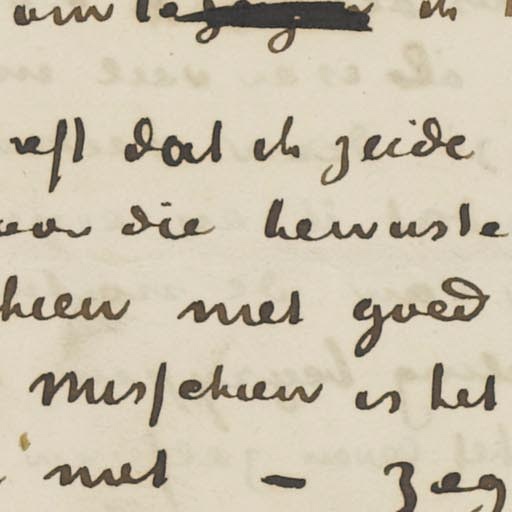 om te ik
reft dat ik zeide
voor die bewuste
chien niet goed
Misschien is het
niet – zeg